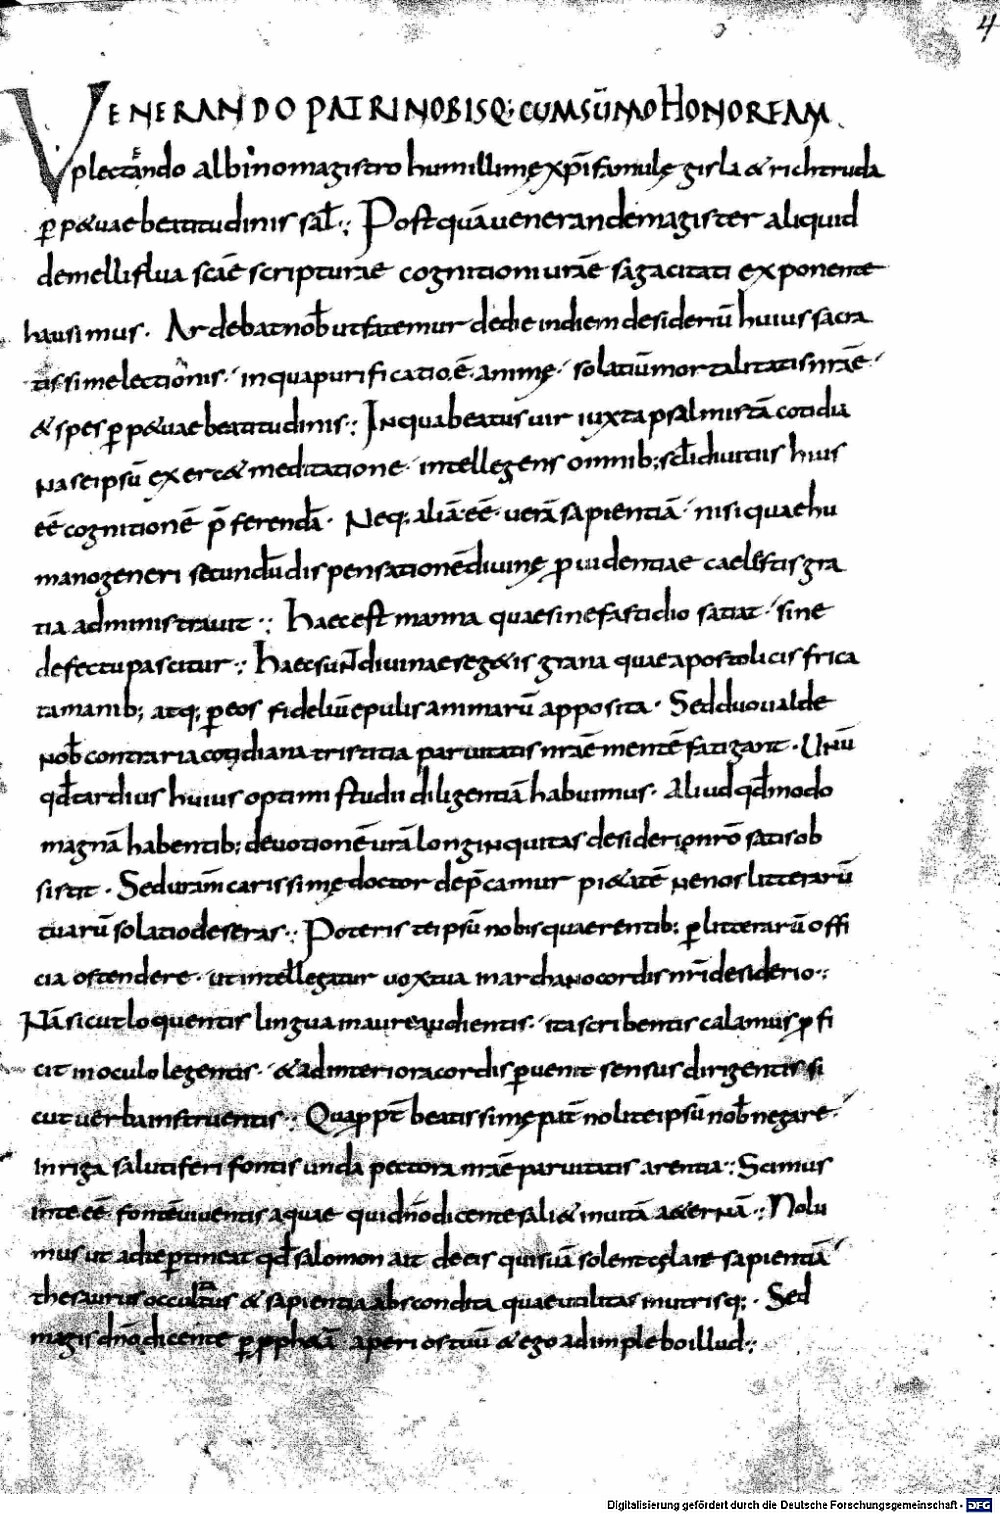 4
VENERANDO PATRI NOBISQ; CUM SŪMO HONORE AM
plectendo albino magistro humillimę xp̄i famulę gisla & richtruda
p̱ p&uae beatitudinis sal̄ ·; Postquā uenerande magister aliquid
de melliflua scāe scripturae cognitioni urāe sagacitati exponente
hausimus · Ardebat nob̄ ut fatemur de die in diem desideriū huius sacra
tissime lectionis ·/ in qua purificatio ē · animę ·/ solatiū mortalitatis nrāe ·/
& spes p̱ p&uae beatitudinis ·; In qua beatus uir iuxta psalmistā cotidia
na se ipsū exerc& meditatione ·/ intellegens omnib; scl̄i diuitiis huius
eē cognitionē p̄ferendā · Neq; aliā eē · uerā sapientiā ·/ nisi quae hu
mano generi secundū dispensationē diuinę prouidentiae caelestis gra
tia administrauit ·; Haec est manna quae sine fastidio satiat ·/ sine
defectu pascitur ·; Haec sunt diuinae seg&is grana quae apostolicis frica
ta manib; atq; p̱ eos fideliū epulis animarū apposita · Sed duo ualde
nob̄ contraria cotidiana tristitia paruitatis nrāe mentē fatigant · Unū
qd̄ tardius huius optimi studii diligentiā habuimus · Aliud qd̄ modo
magnā habentib; deuotionē urā longinquitas desiderio nrō satis ob
sistit · Sed urām carissimę doctor dep̄camur pi&atē ne nos litterarū
tuarū solatio deseras ·; Poteris te ipsū nobis quaerentib; p̱ litterarū offi
cia ostendere ·/ ut intellegatur uox tua in archano cordis nr̄i desiderio ·;
Nā sicut loquentis lingua in aure audientis ·/ ita scribentis calamus profi
cit in oculo legentis ·/ & ad interiora cordis p̱uenit sensus dirigentis si
cut uerba instruentis ·; Quappt̄ beatissimę pat̄ noli te ipsū nob̄ negare ·/
inriga salutiferi fontis unda pectora nrāe paruitatis arentia ·; Scimus
in te eē · fontē uiuentis aquae qui dnō dicente sali& in uitā a&ernā ·; Nolu
mus ut ad te p̱tineat qd̄ salomon ait de eis qui suā solent cęlare sapientiā ·/
thesaurus occultus & sapientia abscondita quae utilitas in utrisq; · Sed
magis dnō dicente p̱ proph&ā aperi os tuū & ego adimplebo illud ·;
Digitalisierung gefördert durch die Deutsche Forschungsgemeinschaft - DFG